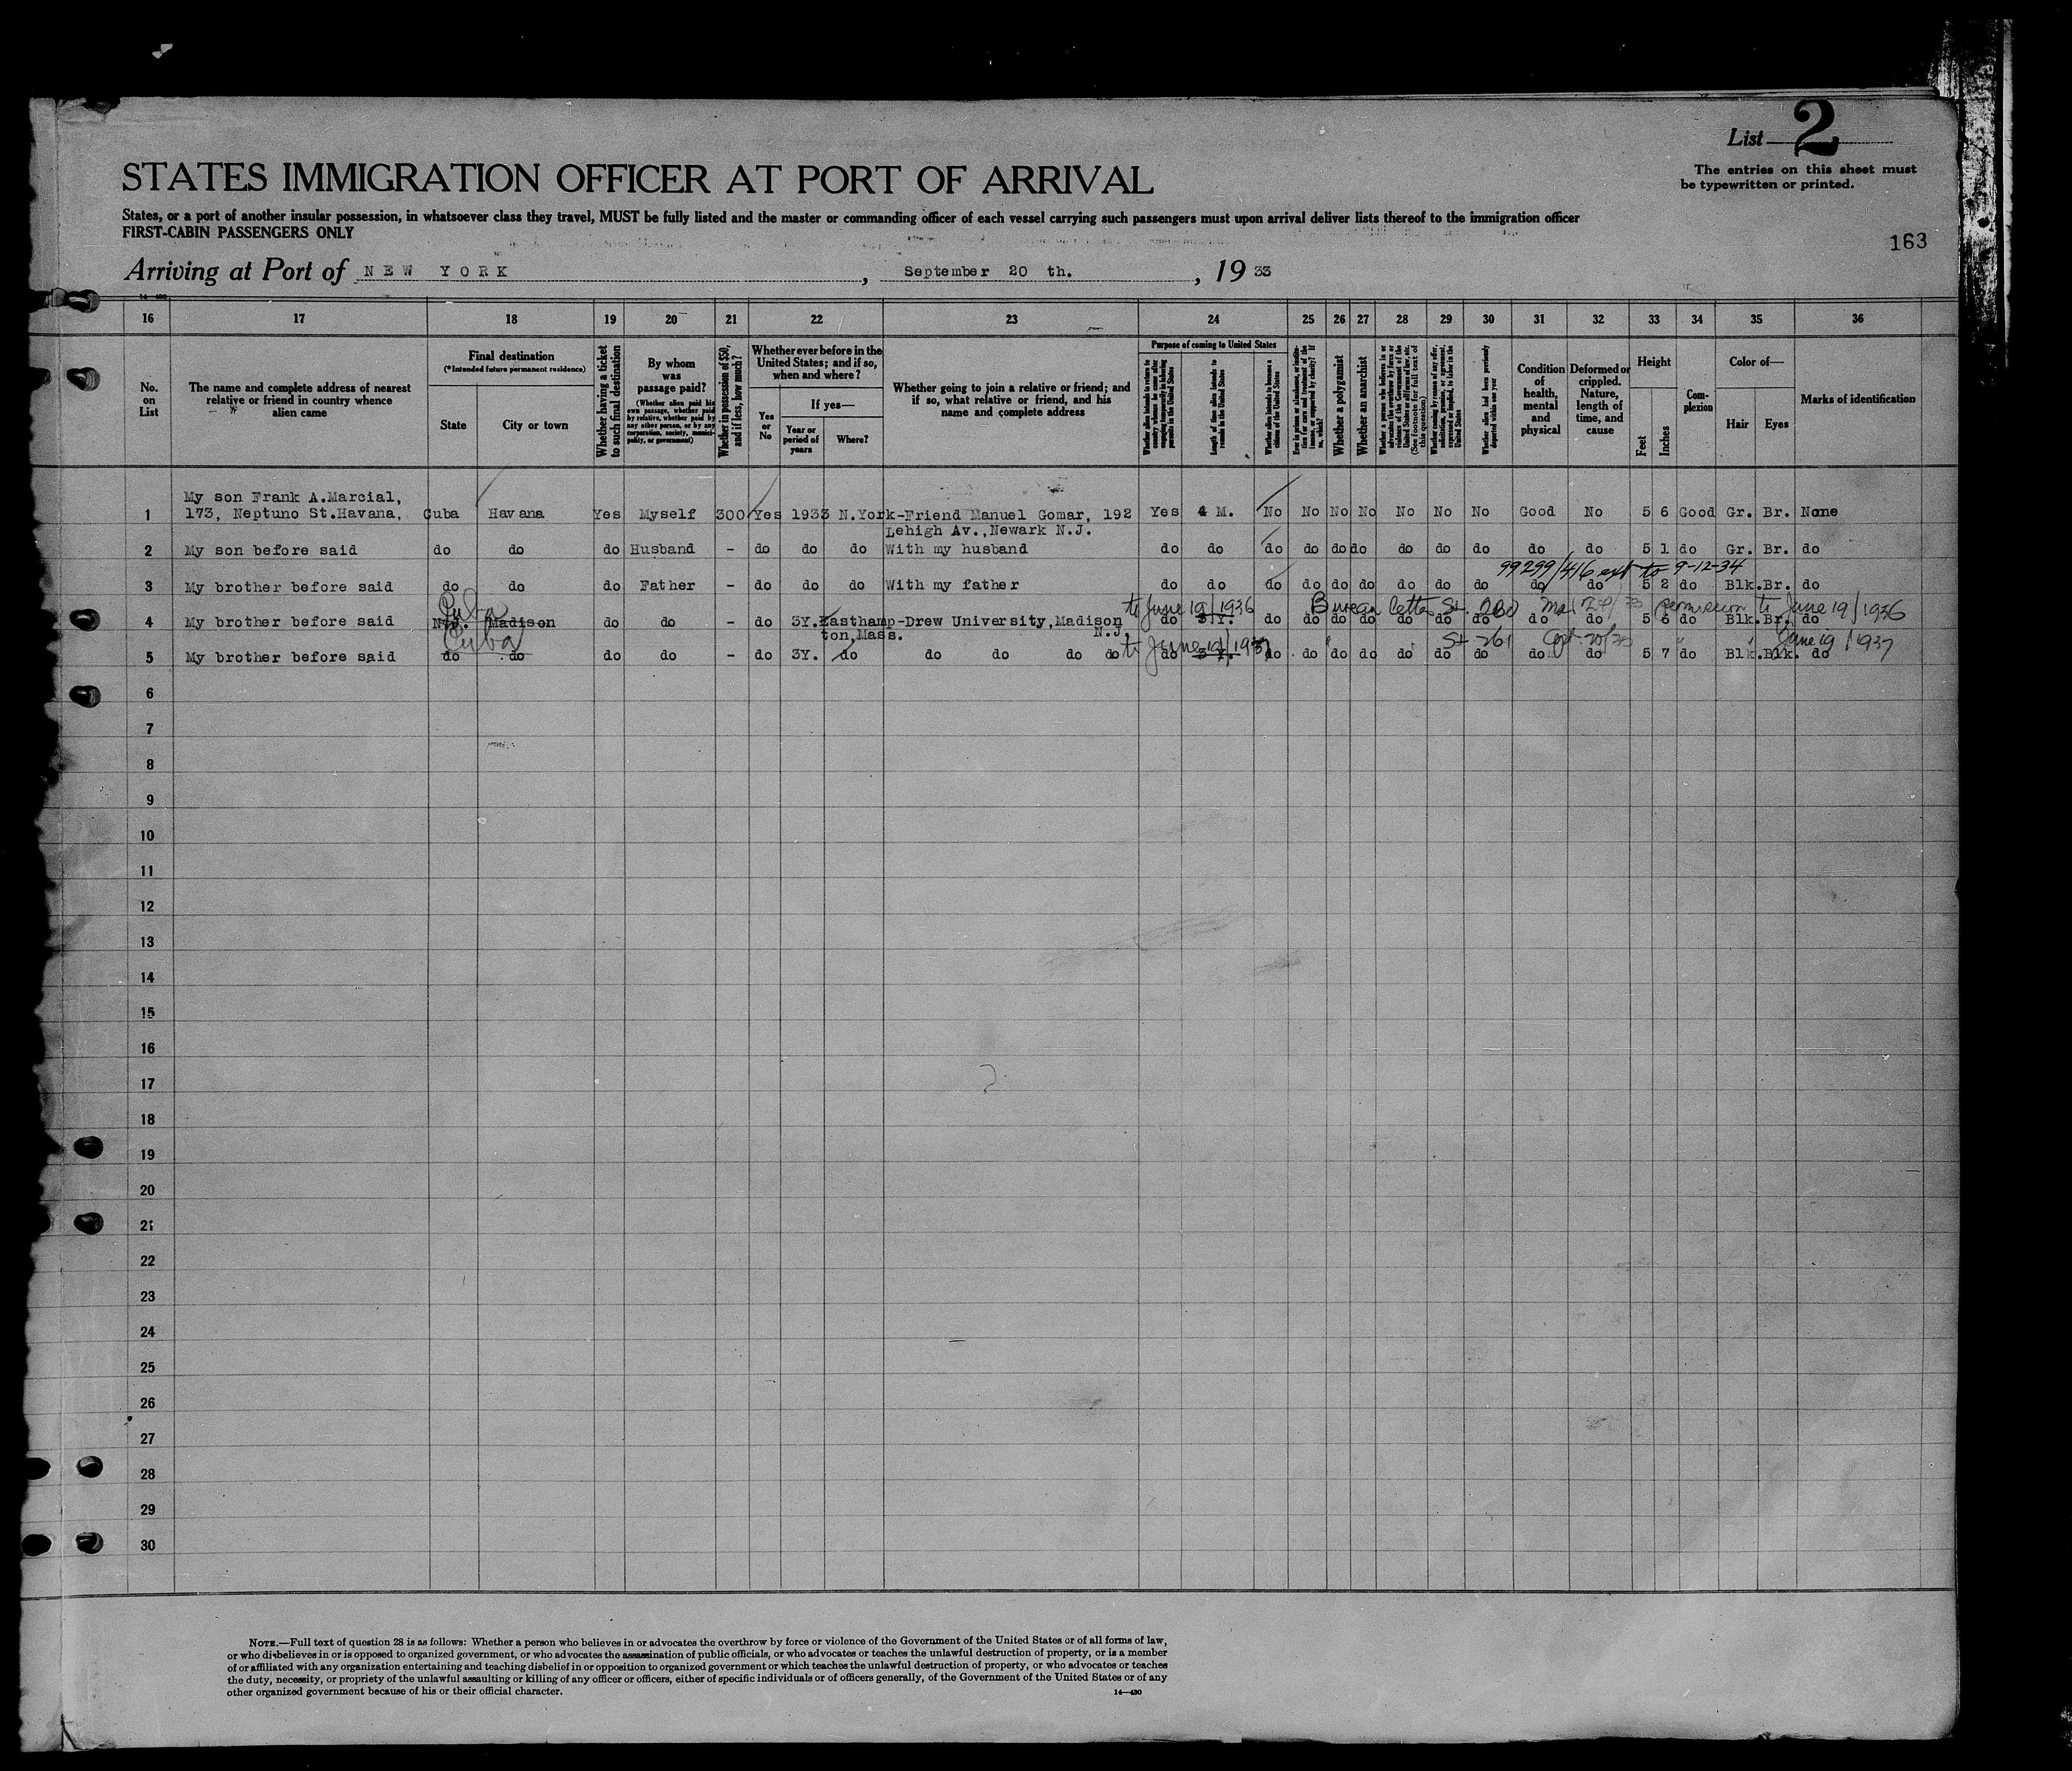 List 2
The entries on this sheet must
be typewritten or printed.
STATES IMMIGRATION OFFICER AT PORT OF ARRIVAL
States, or a port of another insular possession, in whatsoever class they travel, MUST be fully listed and the master or commanding officer of each vessel carrying such passengers must upon arrival deliver lists thereof to the immigration officer
FIRST-CABIN PASSENGERS ONLY
163
Arriving at Port of NEW YORK, September 20 th., 19 33
16 17 18 19 20 21 22 23 24 25 26 27 28 29 30 31 32 33 34 35 36
No. on List
The name and complete address of nearest relative or friend in country whence alien came
Final destination
(*Intended future permanent residence)
State
City or town
Whether having a ticket to such final destination
By whom was passage paid?
(Whether alien paid his own passage, whether paid by relative, whether paid by any other person, or by any corporation, society, municipality, or government)
Whether in possession of $50, and if less, how much?
Whether ever before in the United States; and if so, when and where?
Yes or No
If yes—
Year or period of years
Where?
Whether going to join a relative or friend; and if so, what relative or friend, and his name and complete address
Purpose of coming to United States
Length of time alien intends to remain in the United States
Whether alien intends to become a citizen of the United States
Whether a polygamist
Whether an anarchist
Condition of health, mental and physical
Deformed or crippled. Nature, length of time, and cause
Height
Feet
Inches
Complexion
Color of—
Hair
Eyes
Marks of identification
My son Frank A.Marcial,
1 173, Neptuno St.Havana, Cuba Havana Yes Myself 300 Yes 1933 N.York-Friend Manuel Gomar, 192 Yes 4 M. No No No No No No No Good No 5 6 Good Gr. Br. None
Lehigh Av.,Newark N.J.
2 My son before said do do do Husband - do do do With my husband do do do do do do do do do do do 5 1 do Gr. Br. do
99299/416 ext to 9-12-34
3 My brother before said do do do Father - do do do With my father do do do do do do do do do do do 5 2 do Blk.Br. do
Cuba to June 19/1936 Bureau letter St. permission to June 19/1936
4 My brother before said N.J. Madison do do - do 3Y. Easthamp-Drew University,Madison do 3 Y. do do do do do do do do do 5 6 do Blk.Br. do
ton,Mass. N.J.
Cuba to June 19/1937 St 261 June 19/1937
5 My brother before said do do do do - do 3Y. do do do do do do 3 Y. do do do do do do do do do 5 7 do Blk.Blk. do
6
7
8
9
10
11
12
13
14
15
16
17
18
19
20
21
22
23
24
25
26
27
28
29
30
NOTE.—Full text of question 28 is as follows: Whether a person who believes in or advocates the overthrow by force or violence of the Government of the United States or of all forms of law,
or who disbelieves in or is opposed to organized government, or who advocates the assassination of public officials, or who advocates or teaches the unlawful destruction of property, or is a member
of or affiliated with any organization entertaining and teaching disbelief in or opposition to organized government or which teaches the unlawful destruction of property, or who advocates or teaches
the duty, necessity, or propriety of the unlawful assaulting or killing of any officer or officers, either of specific individuals or of officers generally, of the Government of the United States or of any
other organized government because of his or their official character.
14—430